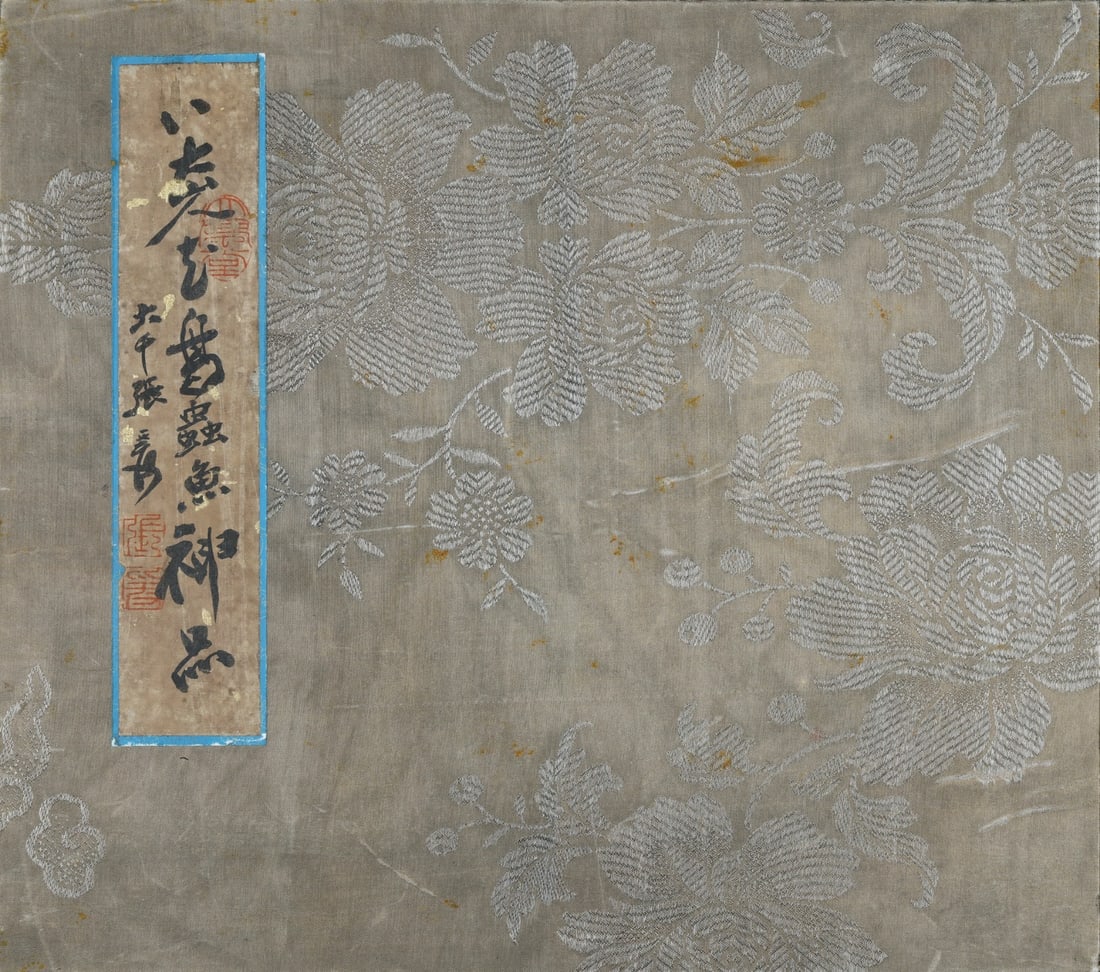 八大山人花鳥蟲魚神品
大千張爰